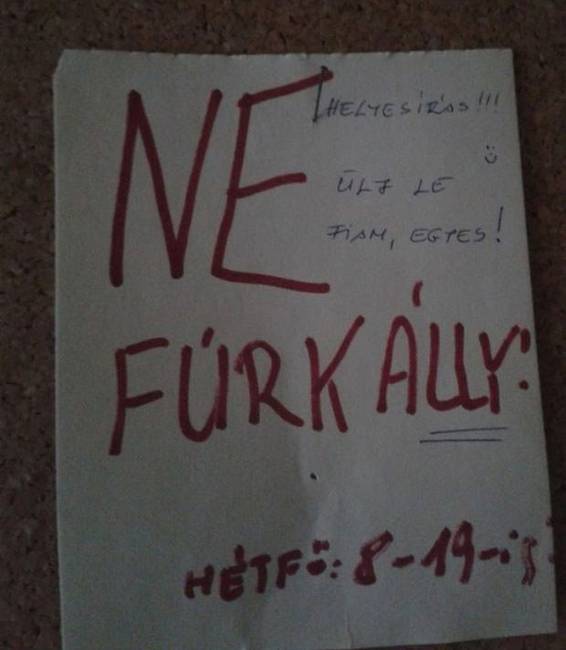 NE
HELYESÍRÁS!!!
ÜLJ LE
FIAM, EGYES!
FÚRKÁLLY!
HÉTFŐ: 8-19-ig!